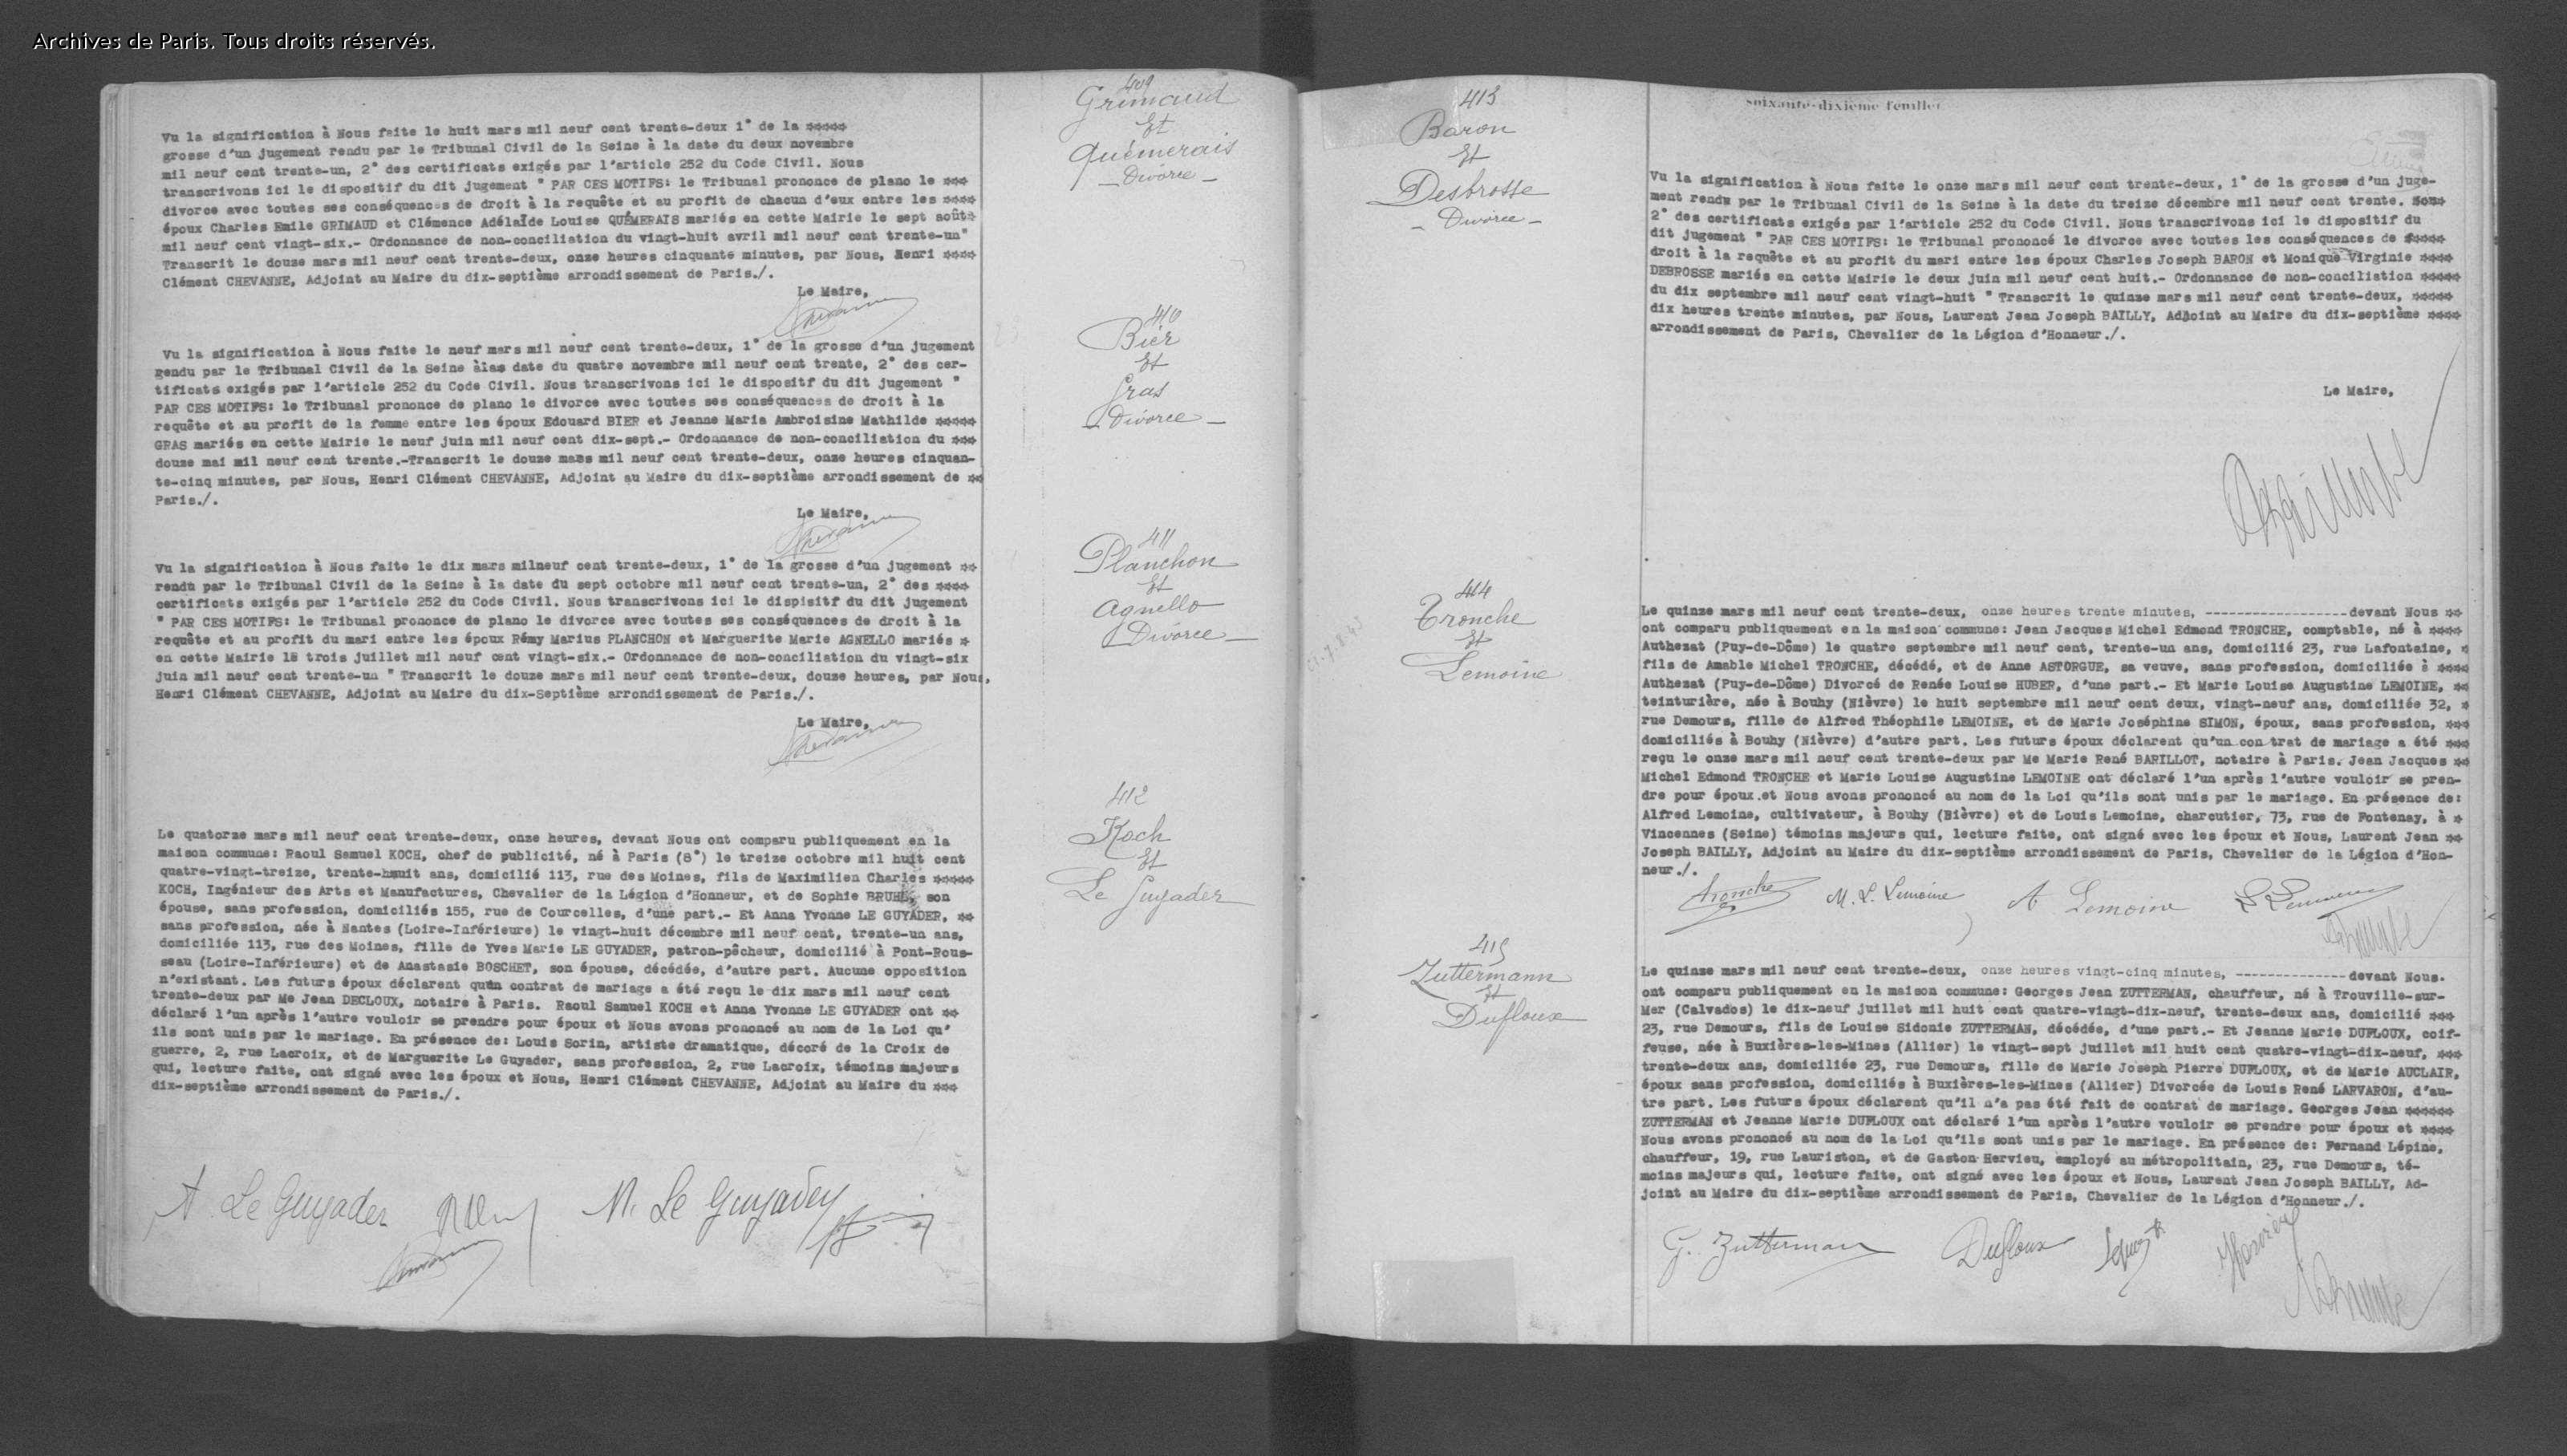 Archives de Paris. Tous droits réservés.
Vu la signification à Nous faite le huit mars mil neuf cent trente-deux 1° de la
grosse d'un jugement rendu par le Tribunal Civil de la Seine à la date du deux novembre
mil neuf cent trente-un, 2° des certificats exigés par l'article 252 du Code Civil. Nous
transcrivons ici le dispositif du dit jugement " PAR CES MOTIFS: le Tribunal prononce de plano le
divorce avec toutes ses conséquences de droit à la requête et au profit de chacun d'eux entre les
époux Charles Emile GRIMAUD et Clémence Adélaïde Louise QUÉMERAIS mariés en cette Mairie le sept août
mil neuf cent vingt-six.- Ordonnance de non-conciliation du vingt-huit avril mil neuf cent trente-un"
Transcrit le douze mars mil neuf cent trente-deux, onze heures cinquante minutes, par Nous, Henri
Clément CHEVANNE, Adjoint au Maire du dix-septième arrondissement de Paris./.
Le Maire,
409
Grimaud
Et
Quémerais
- Divorce -
Vu la signification à Nous faite le neuf mars mil neuf cent trente-deux, 1° de la grosse d'un jugement
rendu par le Tribunal Civil de la Seine àlas date du quatre novembre mil neuf cent trente, 2° des cer-
tificats exigés par l'article 252 du Code Civil. Nous transcrivons ici le dispositf du dit jugement "
PAR CES MOTIFS: le Tribunal prononce de plano le divorce avec toutes ses conséquences de droit à la
requête et au profit de la femme entre les époux Edouard BIER et Jeanne Maria Ambroisine Mathilde
GRAS mariés en cette Mairie le neuf juin mil neuf cent dix-sept.- Ordonnance de non-conciliation du
douze mai mil neuf cent trente.-Transcrit le douze mars mil neuf cent trente-deux, onze heures cinquan-
te-cinq minutes, par Nous, Henri Clément CHEVANNE, Adjoint au Maire du dix-septième arrondissement de
Paris./.
Le Maire,
410
Bier
Et
Gras
- Divorce -
Vu la signification à Nous faite le dix mars milneuf cent trente-deux, 1° de la grosse d'un jugement
rendu par le Tribunal Civil de la Seine à la date du sept octobre mil neuf cent trente-un, 2° des
certificats exigés par l'article 252 du Code Civil. Nous transcrivons ici le dispisitf du dit jugement
" PAR CES MOTIFS: le Tribunal prononce de plano le divorce avec toutes ses conséquences de droit à la
requête et au profit du mari entre les époux Rémy Marius PLANCHON et Marguerite Marie AGNELLO mariés
en cette Mairie le trois juillet mil neuf cent vingt-six.- Ordonnance de non-conciliation du vingt-six
juin mil neuf cent trente-un " Transcrit le douze mars mil neuf cent trente-deux, douze heures, par Nous,
Henri Clément CHEVANNE, Adjoint au Maire du dix-Septième arrondissement de Paris./.
Le Maire,
411
Planchon
Et
Agnello
Divorce -
Le quatorze mars mil neuf cent trente-deux, onze heures, devant Nous ont comparu publiquement en la
maison commune: Raoul Samuel KOCH, chef de publicité, né à Paris (8°) le treize octobre mil huit cent
quatre-vingt-treize, trente-huit ans, domicilié 113, rue des Moines, fils de Maximilien Charles
KOCH, Ingénieur des Arts et Manufactures, Chevalier de la Légion d'Honneur, et de Sophie BRUHL, son
épouse, sans profession, domiciliés 155, rue de Courcelles, d'une part.- Et Anna Yvonne LE GUYADER,
sans profession, née à Nantes (Loire-Inférieure) le vingt-huit décembre mil neuf cent, trente-un ans,
domiciliée 113, rue des Moines, fille de Yves Marie LE GUYADER, patron-pêcheur, domicilié à Pont-Rous-
seau (Loire-Inférieure) et de Anastasie BOSCHET, son épouse, décédée, d'autre part. Aucune opposition
n'existant. Les futurs époux déclarent qu'un contrat de mariage a été reçu le dix mars mil neuf cent
trente-deux par Me Jean DECLOUX, notaire à Paris. Raoul Samuel KOCH et Anna Yvonne LE GUYADER ont
déclaré l'un après l'autre vouloir se prendre pour époux et Nous avons prononcé au nom de la Loi qu'
ils sont unis par le mariage. En présence de: Louis Sorin, artiste dramatique, décoré de la Croix de
guerre, 2, rue Lacroix, et de Marguerite Le Guyader, sans profession, 2, rue Lacroix, témoins majeurs
qui, lecture faite, ont signé avec les époux et Nous, Henri Clément CHEVANNE, Adjoint au Maire du
dix-septième arrondissement de Paris./.
412
Koch
Et
Le Guyader
A. Le Guyader
M. Le Guyader
413
Baron
Et
Desbrosse
- Divorce -
soixante-dixième feuillet
Vu la signification à Nous faite le onze mars mil neuf cent trente-deux, 1° de la grosse d'un juge-
ment rendu par le Tribunal Civil de la Seine à la date du treize décembre mil neuf cent trente.
2° des certificats exigés par l'article 252 du Code Civil. Nous transcrivons ici le dispositif du
dit jugement " PAR CES MOTIFS: le Tribunal prononcé le divorce avec toutes les conséquences de
droit à la requête et au profit du mari entre les époux Charles Joseph BARON et Monique Virginie
DEBROSSE mariés en cette Mairie le deux juin mil neuf cent huit.- Ordonnance de non-conciliation
du dix septembre mil neuf cent vingt-huit " Transcrit le quinze mars mil neuf cent trente-deux,
dix heures trente minutes, par Nous, Laurent Jean Joseph BAILLY, Adjoint au Maire du dix-septième
arrondissement de Paris, Chevalier de la Légion d'Honneur./.
Le Maire,
414
Tronche
Et
Lemoine
Le quinze mars mil neuf cent trente-deux, onze heures trente minutes, ------------------ devant Nous
ont comparu publiquement en la maison commune: Jean Jacques Michel Edmond TRONCHE, comptable, né à
Authezat (Puy-de-Dôme) le quatre septembre mil neuf cent, trente-un ans, domicilié 23, rue Lafontaine,
fils de Amable Michel TRONCHE, décédé, et de Anne ASTORGUE, sa veuve, sans profession, domiciliée à
Authezat (Puy-de-Dôme) Divorcé de Renée Louise HUBER, d'une part.- Et Marie Louise Augustine LEMOINE,
teinturière, née à Bouhy (Nièvre) le huit septembre mil neuf cent deux, vingt-neuf ans, domiciliée 32,
rue Demours, fille de Alfred Théophile LEMOINE, et de Marie Joséphine SIMON, époux, sans profession,
domiciliés à Bouhy (Nièvre) d'autre part. Les futurs époux déclarent qu'un con trat de mariage a été
reçu le onze mars mil neuf cent trente-deux par Me Marie René BARILLOT, notaire à Paris. Jean Jacques
Michel Edmond TRONCHE et Marie Louise Augustine LEMOINE ont déclaré l'un après l'autre vouloir se pren-
dre pour époux.et Nous avons prononcé au nom de la Loi qu'ils sont unis par le mariage. En présence de:
Alfred Lemoine, cultivateur, à Bouhy (Bièvre) et de Louis Lemoine, charcutier, 73, rue de Fontenay, à
Vincennes (Seine) témoins majeurs qui, lecture faite, ont signé avec les époux et Nous, Laurent Jean
Joseph BAILLY, Adjoint au Maire du dix-septième arrondissement de Paris, Chevalier de la Légion d'Hon-
neur./.
Tronche M. L. Lemoine A Lemoine L Lemoine
415
Zuttermann
Et
Dufloux
Le quinze mars mil neuf cent trente-deux, onze heures vingt-cinq minutes, -------------- devant Nous.
ont comparu publiquement en la maison commune: Georges Jean ZUTTERMAN, chauffeur, né à Trouville-sur-
Mer (Calvados) le dix-neuf juillet mil huit cent quatre-vingt-dix-neuf, trente-deux ans, domicilié
23, rue Demours, fils de Louise Sidonie ZUTTERMAN, décédée, d'une part.- Et Jeanne Marie DUFLOUX, coif-
feuse, née à Buxières-les-Mines (Allier) le vingt-sept juillet mil huit cent quatre-vingt-dix-neuf,
trente-deux ans, domiciliée 23, rue Demours, fille de Marie Joseph Pierre DUFLOUX, et de Marie AUCLAIR,
époux sans profession, domiciliés à Buxières-les-Mines (Allier) Divorcée de Louis René LARVARON, d'au-
tre part. Les futurs époux déclarent qu'il n'a pas été fait de contrat de mariage. Georges Jean
ZUTTERMAN et Jeanne Marie DUFLOUX ont déclaré l'un après l'autre vouloir se prendre pour époux et
Nous avons prononcé au nom de la Loi qu'ils sont unis par le mariage. En présence de: Fernand Lépine,
chauffeur, 19, rue Lauriston, et de Gaston Hervieu, employé au métropolitain, 23, rue Demours, té-
moins majeurs qui, lecture faite, ont signé avec les époux et Nous, Laurent Jean Joseph BAILLY, Ad-
joint au Maire du dix-septième arrondissement de Paris, Chevalier de la Légion d'Honneur./.
G. Zutterman Dufloux